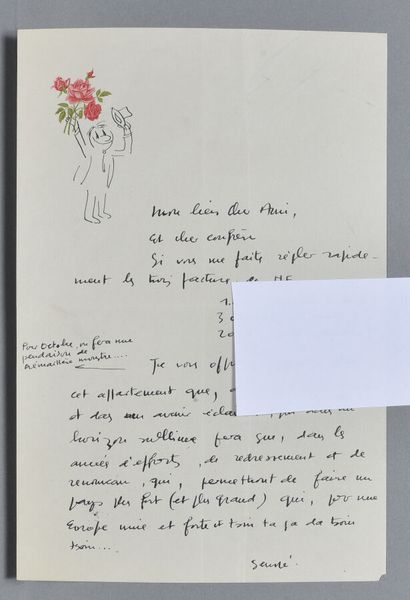 Mon bien cher Ami,
et cher confrère
Si vous me faites régler rapide-
ment les trois factures de
1.
3
20
Pour Octobre, on fera une
pendaison de
crémaillère monstre....
Je vous
cet appartement que,
et dans un avenir
horizon sublime fera que, dans les
années d'efforts, de redressement et de
renouveau, qui, permettront de faire un
pays plus fort (et plus grand) qui, pour une
Europe unie et forte et tsoin ta ga da tsoin
tsoin...
Sempé.